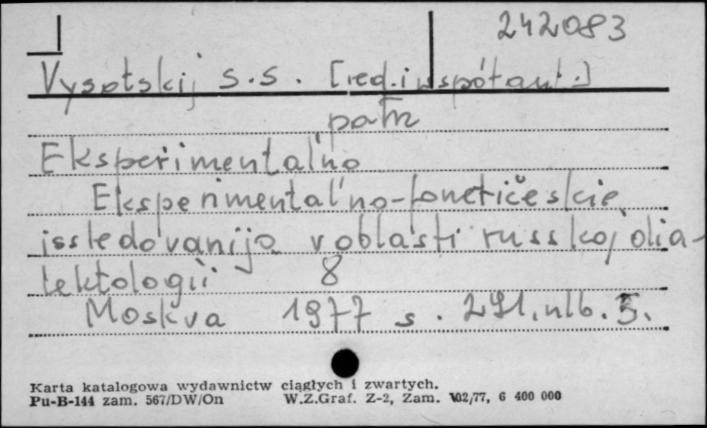 242083
Vysotskij S.S. [red.i współaut.]
patrz
Eksperimental'no
Eksperimental'no-fonetičeskie
issledovanija v oblasti russkoj dia-
lektologii 8
Moskva 1977 s. 291, nlb. 5.
Karta katalogowa wydawnictw ciągłych i zwartych.
Pu-B-144 zam. 567/DW/On W.Z.Graf. Z-2, Zam. 102/77, 6 400 000